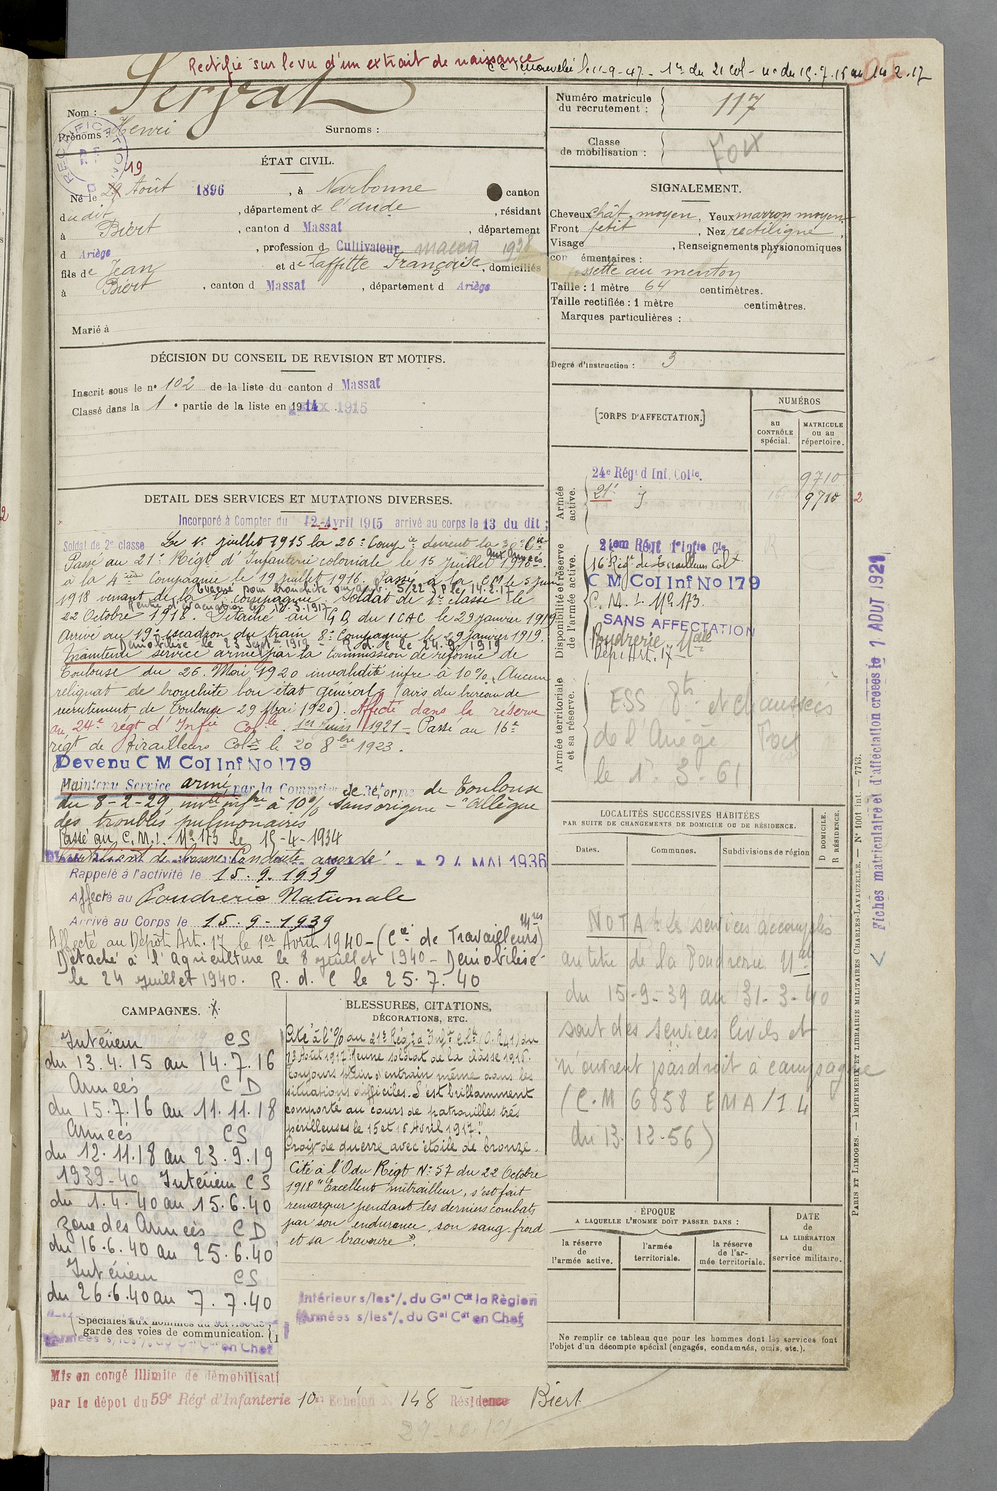 Rectifié sur le vu d'un extrait de naissance
Nom : Servat
Prénoms : Henri
Surnoms :
RECTIFICATION
ÉTAT CIVIL.
19
Né le Août 1896, à Narbonne canton
dudit, département de l'aude, résidant
à Biert, canton d Massat, département
d Ariège, profession d Cultivateur maçon
fils de Jean et de Laffitte Françoise, domiciliés
à Biert, canton d Massat, département d Ariège
Marié à
DÉCISION DU CONSEIL DE REVISION ET MOTIFS.
Inscrit sous le n° 102 de la liste du canton d Massat
Classé dans la 1e partie de la liste en 1915
DETAIL DES SERVICES ET MUTATIONS DIVERSES.
Incorporé à Compter du 12 Avril 1915 arrivé au corps le 13 du dit ;
Soldat de 2e classe
Passé au 21e Régt d'Infanterie coloniale le 15 juillet 1916
aux Armées
à la 4me Compagnie le 19 juillet 1916. Passé à la CM le 5 juin
1918 venant de la compagnie Soldat de 1e classe le
22 Octobre 1918. Détaché au G.Q. du 1 CAC le 29 janvier 1919
Arrivé au 19e Escadron du train 8e Compagnie le 29 janvier 1919.
Démobilisé le 23 Sept. 1919 - R.d.C le 24.9.1919
Maintenu service armé par la Commission de réforme de
Toulouse du 26 Mai 1920 invalidité infre à 10%. Aucun
reliquat de bronchite bon état général (avis du bureau de
recrutement de Toulouse 29 Mai 1920). Affecté dans la réserve
au 24e régt d'Infie Colle 1er Juin 1921 - Passé au 16e
régt de Tirailleurs Colx le 20 8bre 1923.
Devenu C M Col Inf No 179
Maintenu Service armé par la Commission de Réforme de Toulouse
du 8-2-29, invté infre à 10% sans origine - "Allègue
des troubles pulmonaires
Passé au C.M.I. No 173 le 15-4-1934
24 MAI 1936
Rappelé à l'activité le 15.9.1939
Affecté au Poudrerie Nationale
Arrivé au Corps le 15.9-1939
Affecté au Dépôt Art. 17 le 1er Avril 1940 - (Cie de Travailleurs)
Détaché à l'Agriculture le 8 juillet 1940 - Démobilisé
le 24 juillet 1940. R.d.C le 25.7.40
CAMPAGNES.
Intérieur CS
du 13.4.15 au 14.7.16
Armées CD
du 15.7.16 au 11.11.18
Armées CS
du 12.11.18 au 23.9.19
1939-40 Intérieur CS
du 1.4.40 au 15.6.40
Zone des Armées CD
du 16.6.40 au 25.6.40
Intérieur CS
du 26.6.40 au 7.7.40
garde des voies de communication.
en Chef
BLESSURES, CITATIONS,
DÉCORATIONS, ETC.
Cité à l'O/ au 21e Rég d'Infie Cole
Jeune soldat de la classe 1916.
Toujours plein d'entrain même dans les
situations difficiles. S'est brillamment
comporté au cours de patrouilles très
périlleuses le 15 et 16 Avril 1917."
Croix de guerre avec étoile de bronze.
Cité à l'O du Régt N° 57 du 22 Octobre
1918 "Excellent mitrailleur, s'est fait
remarquer pendant les derniers combats
par son endurance, son sang froid
et sa bravoure".
Intérieur s/les % du Gal Cdt la Région
Armées s/les % du Gal Cdt en Chef
Mis en congé illimité de démobilisati
par le dépot du 59e Régt d'Infanterie 10e Echelon 148 Résidence Biert
Numéro matricule
du recrutement : 117
Classe
de mobilisation :
Foix
SIGNALEMENT.
Cheveux chât. moyen, Yeux marron moyen
Front petit, Nez rectiligne
Visage , Renseignements physionomiques
émentaires :
fossette au menton
Taille : 1 mètre 64 centimètres.
Taille rectifiée : 1 mètre centimètres.
Marques particulières :
Degré d'instruction : 3
CORPS D'AFFECTATION.
NUMÉROS
au CONTRÔLE spécial.
MATRICULE ou au répertoire.
Armée active.
24e Régt d Inf. Colle. 9710
21e 9710
2
Disponibilité et réserve de l'armée active.
16 Régt de Tirailleurs Colx
C M Col Inf No 179
C. M. I. No 173.
SANS AFFECTATION
Poudrerie Nale
Dépôt Art. 17
Armée territoriale et sa réserve.
ESS Pts et chaussées
de l'Ariège Foix
le 1. 3. 61
LOCALITÉS SUCCESSIVES HABITÉES
PAR SUITE DE CHANGEMENTS DE DOMICILE OU DE RÉSIDENCE.
Dates. Communes. Subdivisions de région
D DOMICILE. R RÉSIDENCE.
NOTA : les services accomplis
au titre de la Poudrerie Nale
du 15-9-39 au 31-3-40
sont des services civils et
n'ouvrent pas droit à campagne
(C.M 6858 EMA/1 L
du 13-12-56)
ÉPOQUE
A LAQUELLE L'HOMME DOIT PASSER DANS :
la réserve de l'armée active.
l'armée territoriale.
la réserve de l'armée territoriale.
DATE DE LA LIBÉRATION du service militaire.
Ne remplir ce tableau que pour les hommes dont les services font
l'objet d'un décompte spécial (engagés, condamnés, omis, etc.).
PARIS ET LIMOGES. — IMPRIMERIE ET LIBRAIRIE MILITAIRES CHARLES-LAVAUZELLE. — N° 1001 int. — 7743.
Fiches matriculaire et d'affectation créées le 1 AOUT 1921